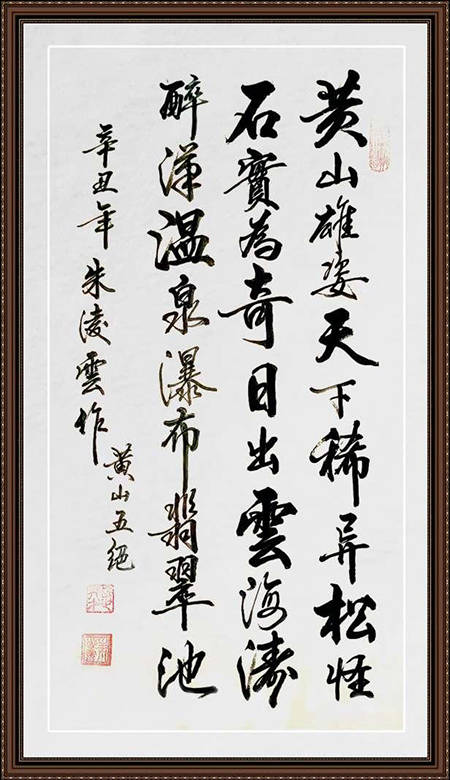 黄山雄姿天下稀异松怪
石實為奇日出雲海濤
醉洋温泉瀑布翡翠池
辛丑年朱凌雲作
黄山五绝